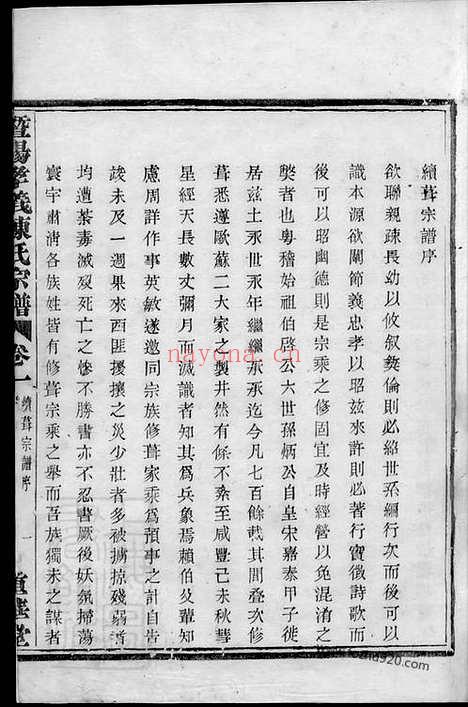 續葺宗譜序
欲聯親疎畏幼以攸叙彜倫則必繪世系續行次而後可以
識本源欲闡節義忠孝以昭兹來許則必著行實徵詩歌而
後可以昭幽德則是宗乘之修固宜及時經營以免混淆之
獘者也粤稽始祖啓公六世孫炳公自皇宋嘉泰甲子徙
居兹土永世年繼繼承承迄今凡七百餘載其間叠次修
葺悉遵歐蘇二大家之製井然有條不紊至咸豐己未秋彗
星經天長數丈彌月而滅識者知其爲兵象焉賴伯父輩知
慮周詳作事英敏遂邀同宗族修葺家乘爲預事之計自告
竣未及一週果來西匪擾攘之災少壯者多被擄掠殘弱者
均遭荼毒滅裂死亡之慘不勝書亦不忍書厥後妖氛掃蕩
寰宇肅清各族姓皆有修葺宗乘之舉而吾族獨未之謀者
暨陽孝義陳氏宗譜 卷一 續葺宗譜序 一
nayona.cn
www.found920.com